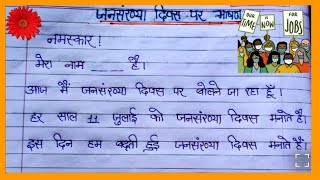 जनसंख्या दिवस पर भाषण
OUR TIME IS NOW
FOR JOBS
नमस्कार!
मेरा नाम ____ है।
आज मैं जनसंख्या दिवस पर बोलने जा रहा हूँ।
हर साल 11 जुलाई को जनसंख्या दिवस मनाते हैं।
इस दिन हम बढ़ती हुई जनसंख्या दिवस मनाते हैं।